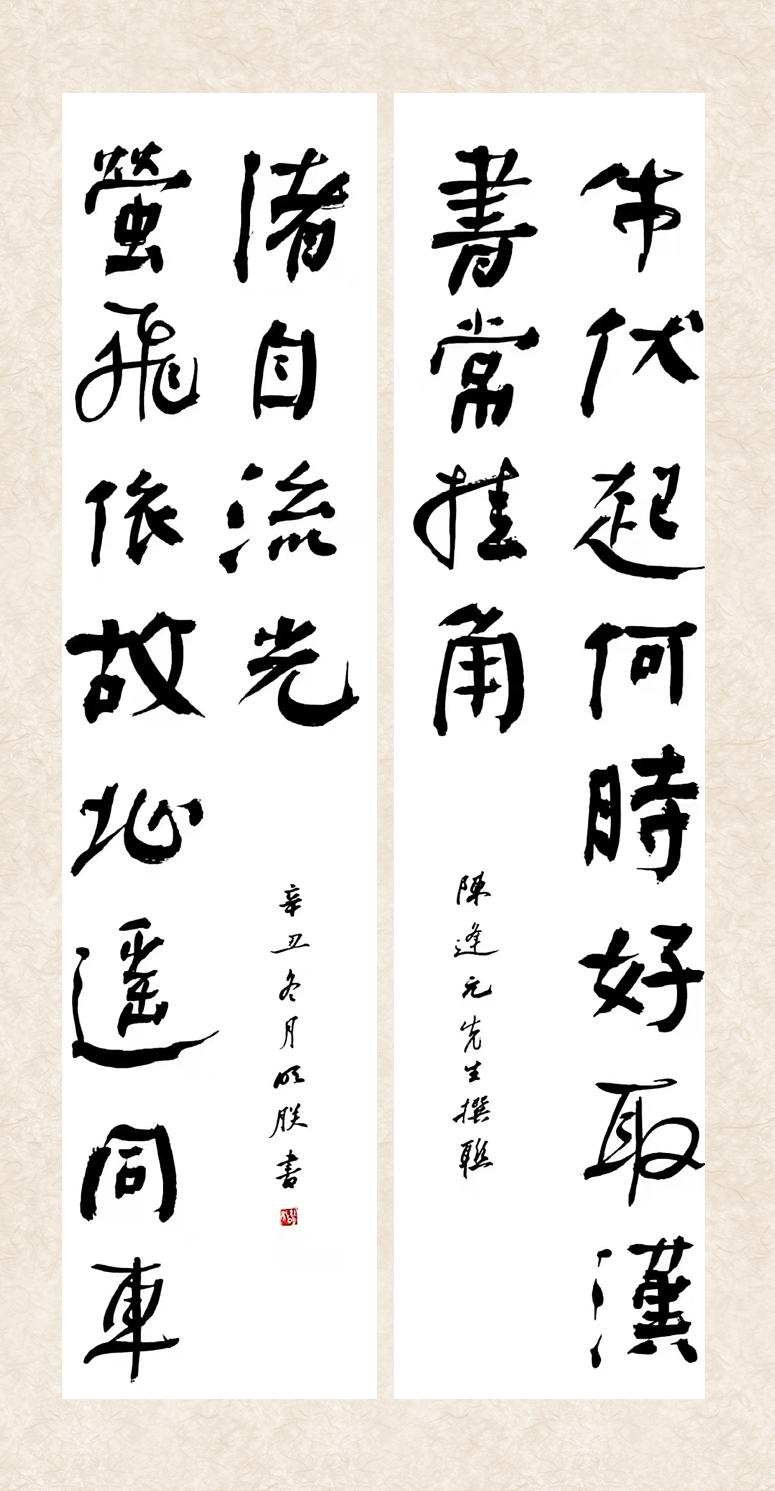 牛伏起何時好取漢
書常挂角
陳逢元先生撰聯
螢飛依故址遙同車
渚自流光
辛丑冬月 書